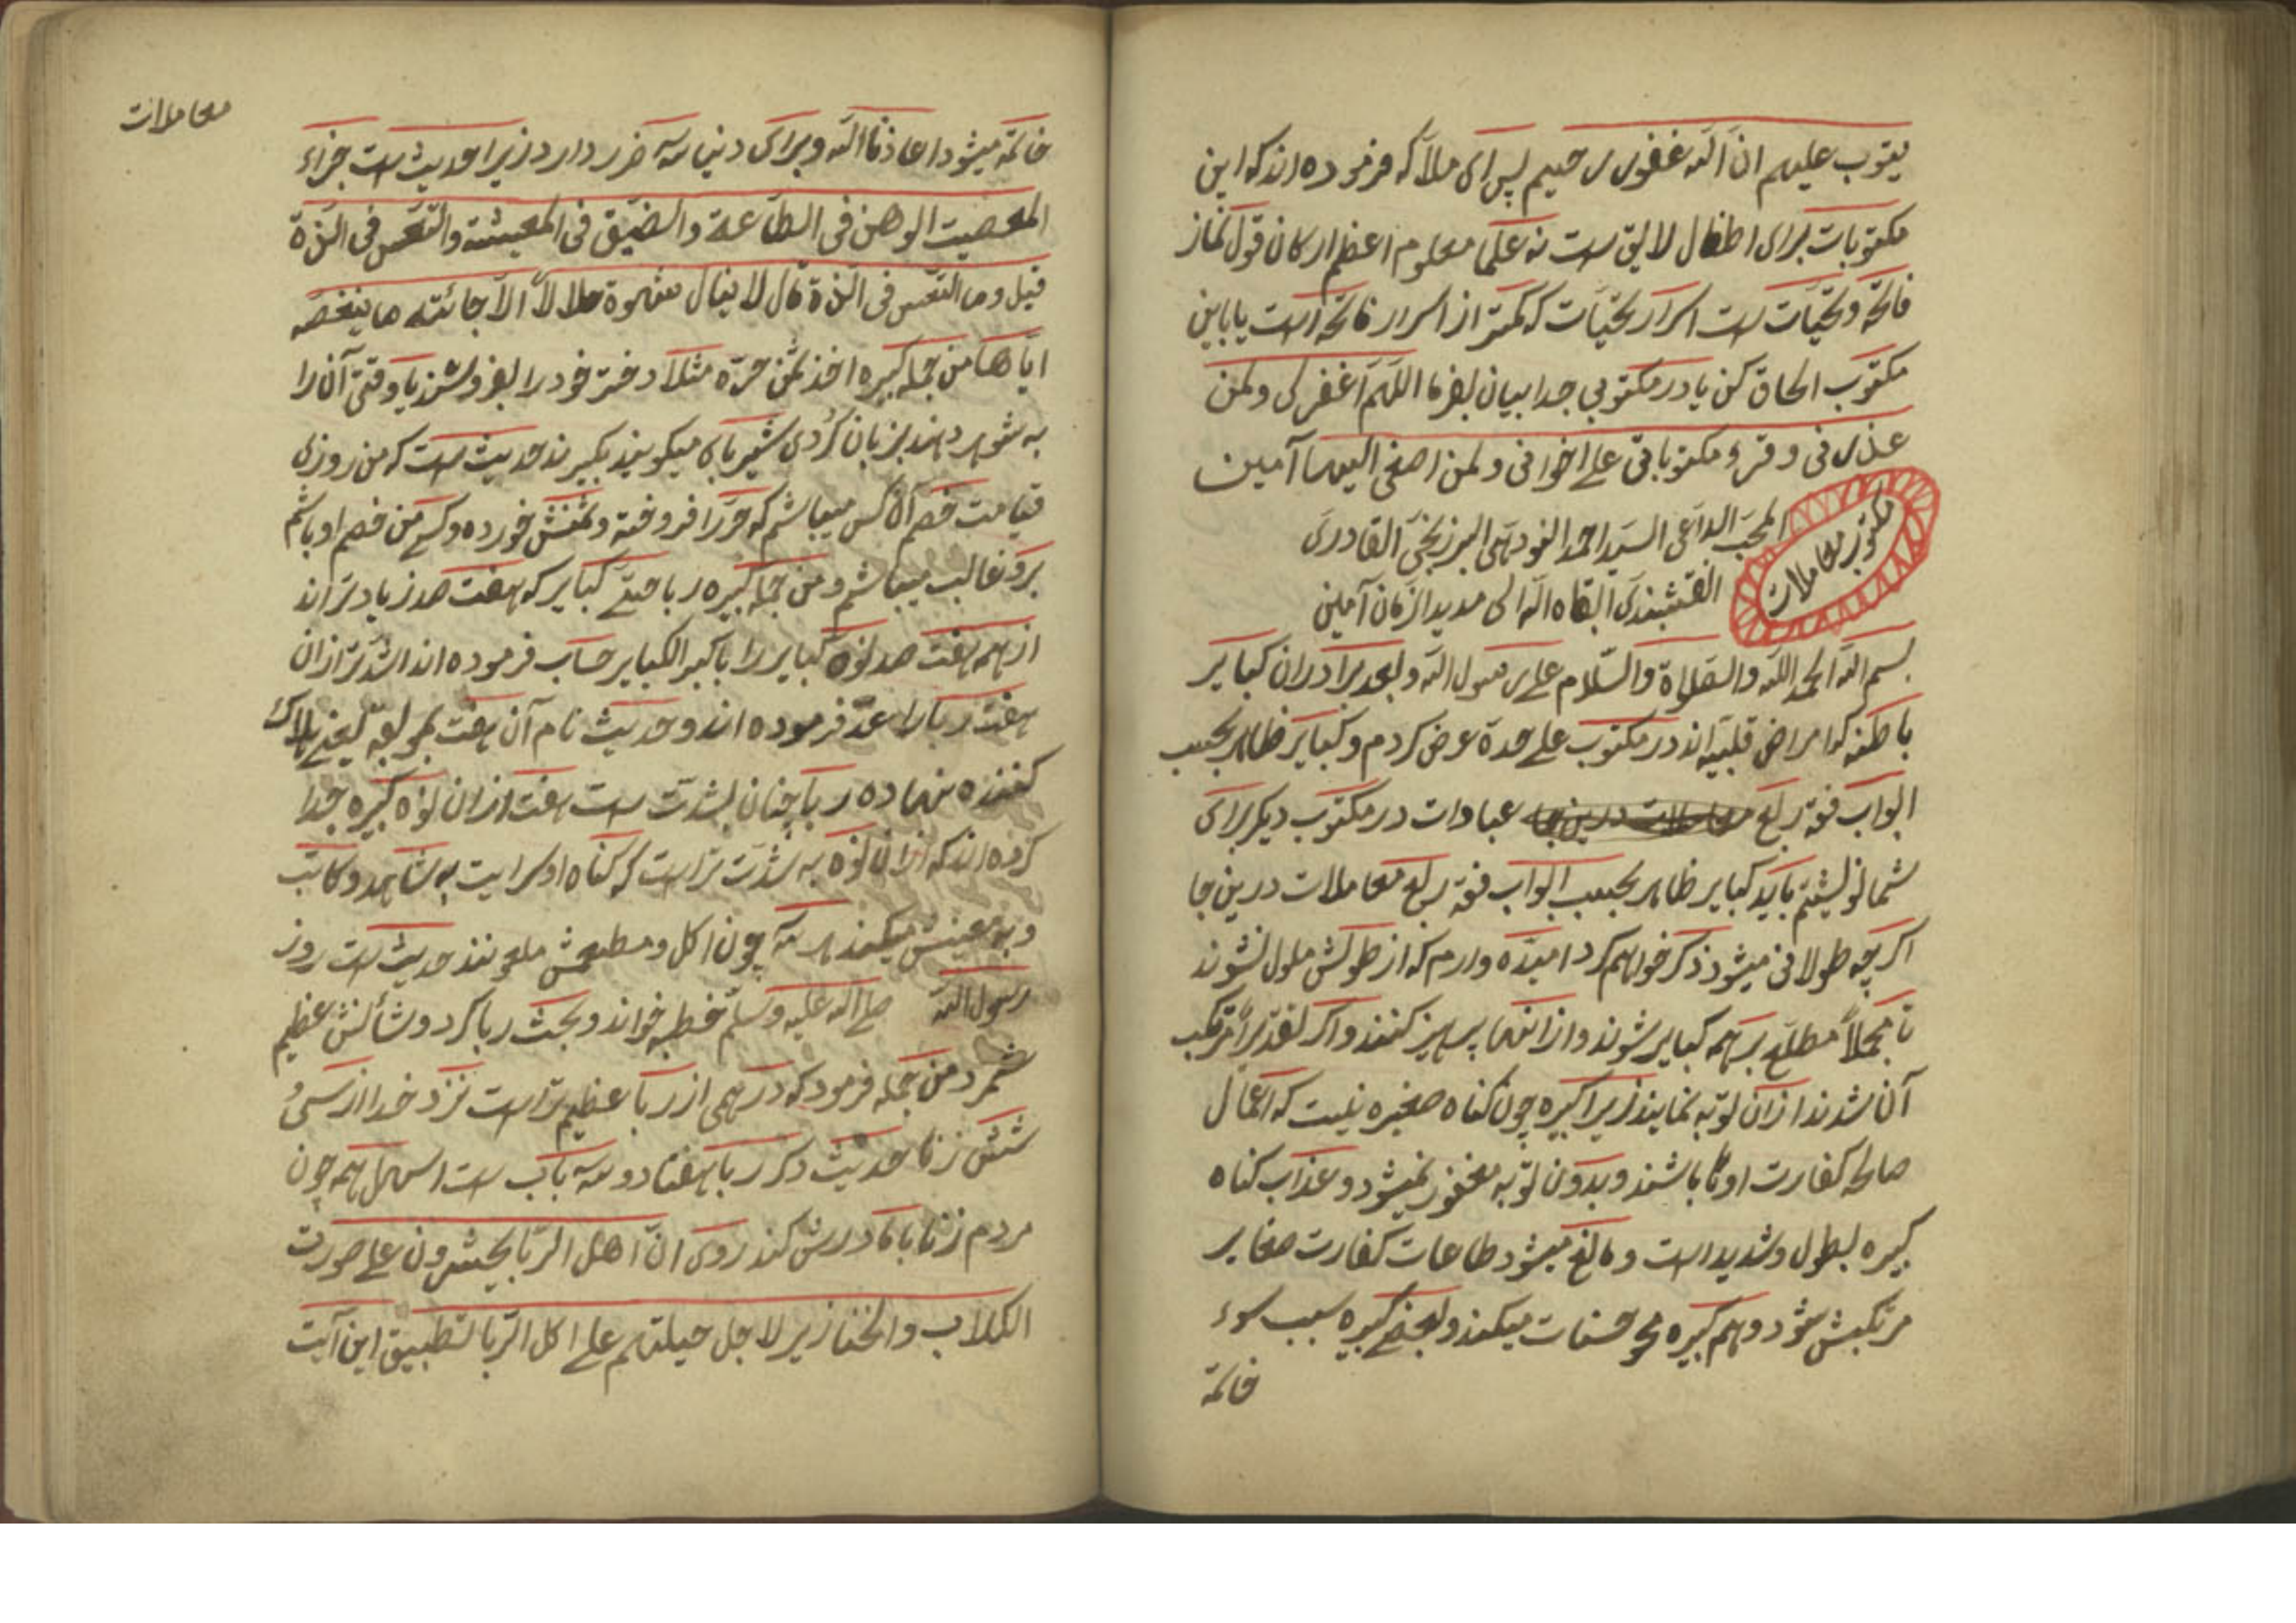 یتوب علیهم ان الله غفور رحیم پس ای ملا که فرموده اند که این
مکتوبات برای اطفال لایق ست نه علما معلوم اعظم ارکان قول نماز
فاتحه و تحیّات ست اسرار تحیّات که کمتر از اسرار فاتحه است یا باین
مکتوب الحاق کن یا در مکتوبی جدا بیان بفرما اللهم اغفر لی ولمن
عذرنی وقرء مکتوباتی علی اخوانی ولمن اصغی الیها آمین
المحب الداعی السید احمد النودهی البرزنجی القادری
النقشبندی ابقاه الله الی مدید الزمان آمین
مکتوب معاملات
بسم الله الحمد لله والصلاة والسّلام علی رسول الله وبعد برادران کبایر
باطنه که امراض قلبیّه اند در مکتوب علی حدة عرض کردم و کبایر ظاهر بحسب
ابواب فقه ربع عبادات در مکتوب دیگر برای
شما نوشیتم باید کبایر ظاهر بحسب ابواب فقه ربع معاملات درین جا
اگر چه طولانی میشود ذکر خواهم کرد امیدّه وارم که از طولش ملول نشوند
تا مجملاً مطلع بر همه کبایر شوند و از انها پرهیز کنند و اگر لقدیراً مرتکب
آن شدند ازان توبه نمایند زیرا کبیره چون گناه صغیره نیست که اعمال
صالحه کفارت او تا باشند و بدون توبه مغفور نمیشود و عذاب گناه
کبیره بطول و شدید است و مانع میشود طاعات کفارت صغایر
مرتکبش شود و هم کبیره محو حسنات میکند و بعضی کبیره سبب سوء
خاتمة
معاملات
خاتمة میشود اعاذنا الله و برای دنیا سه ضرر دارد زیرا حدیث ست جزاء
المعصیت الوهن فی الطاعة والضیق فی المعیشة والتعس فی اللذة
قیل وما التعس فی اللذة قال لا ینال شهوة حلالاً الا جائته ما ینغصه
ایاها من جمله کبیره اخذ ثمن حرّه مثلا دختر خود را بفروشند یا وقتی آن را
به شوهر دهند بزبان کُردی شیربای میگویند بگیرند حدیث ست که من روزی
قیامت خصم آن کس میباشم که حرّ را فروخته و ثمنش خورده و کسی من خصم او باشم
برو غالب میباشم و من جمله کبیره ربا حتی کبایر که هفت صد زیادتر اند
از همه هفت صد نوه کبایر را با کبر الکبایر حساب فرموده اند اشدتر ازان
هفت ربا را عدّ فرموده اند و حدیث نام آن هفت بموبقه یعنی هلاک
کننده نهاده ربا چنان بشدت ست هفت ازان نوه کبیره جدا
کرده اند که ازان نوه به شدت تر است که گناه او سرایت به شاهد و کاتب
و به معینش میکند هر سه چون اکل و مطعمش ملعونند حدیث ست روز
رسول الله صلی الله علیه وسلّم خطبه خواند و بحث ربا کرد و شأنش عظیم
شمرد من جمله فرمود که درهمی از ربا عظیم تر است نزد خدا از سی و
شش زنا حدیث دگر ربا هفتاد و سه باب ست اسهل همه چون
مردم زنا با مادرش کند روی انّ اهل الربا یحشرون علی صورت
الکلاب والخنازیر لاجل حیلتهم علی اکل الربا لتطبیق این آیت